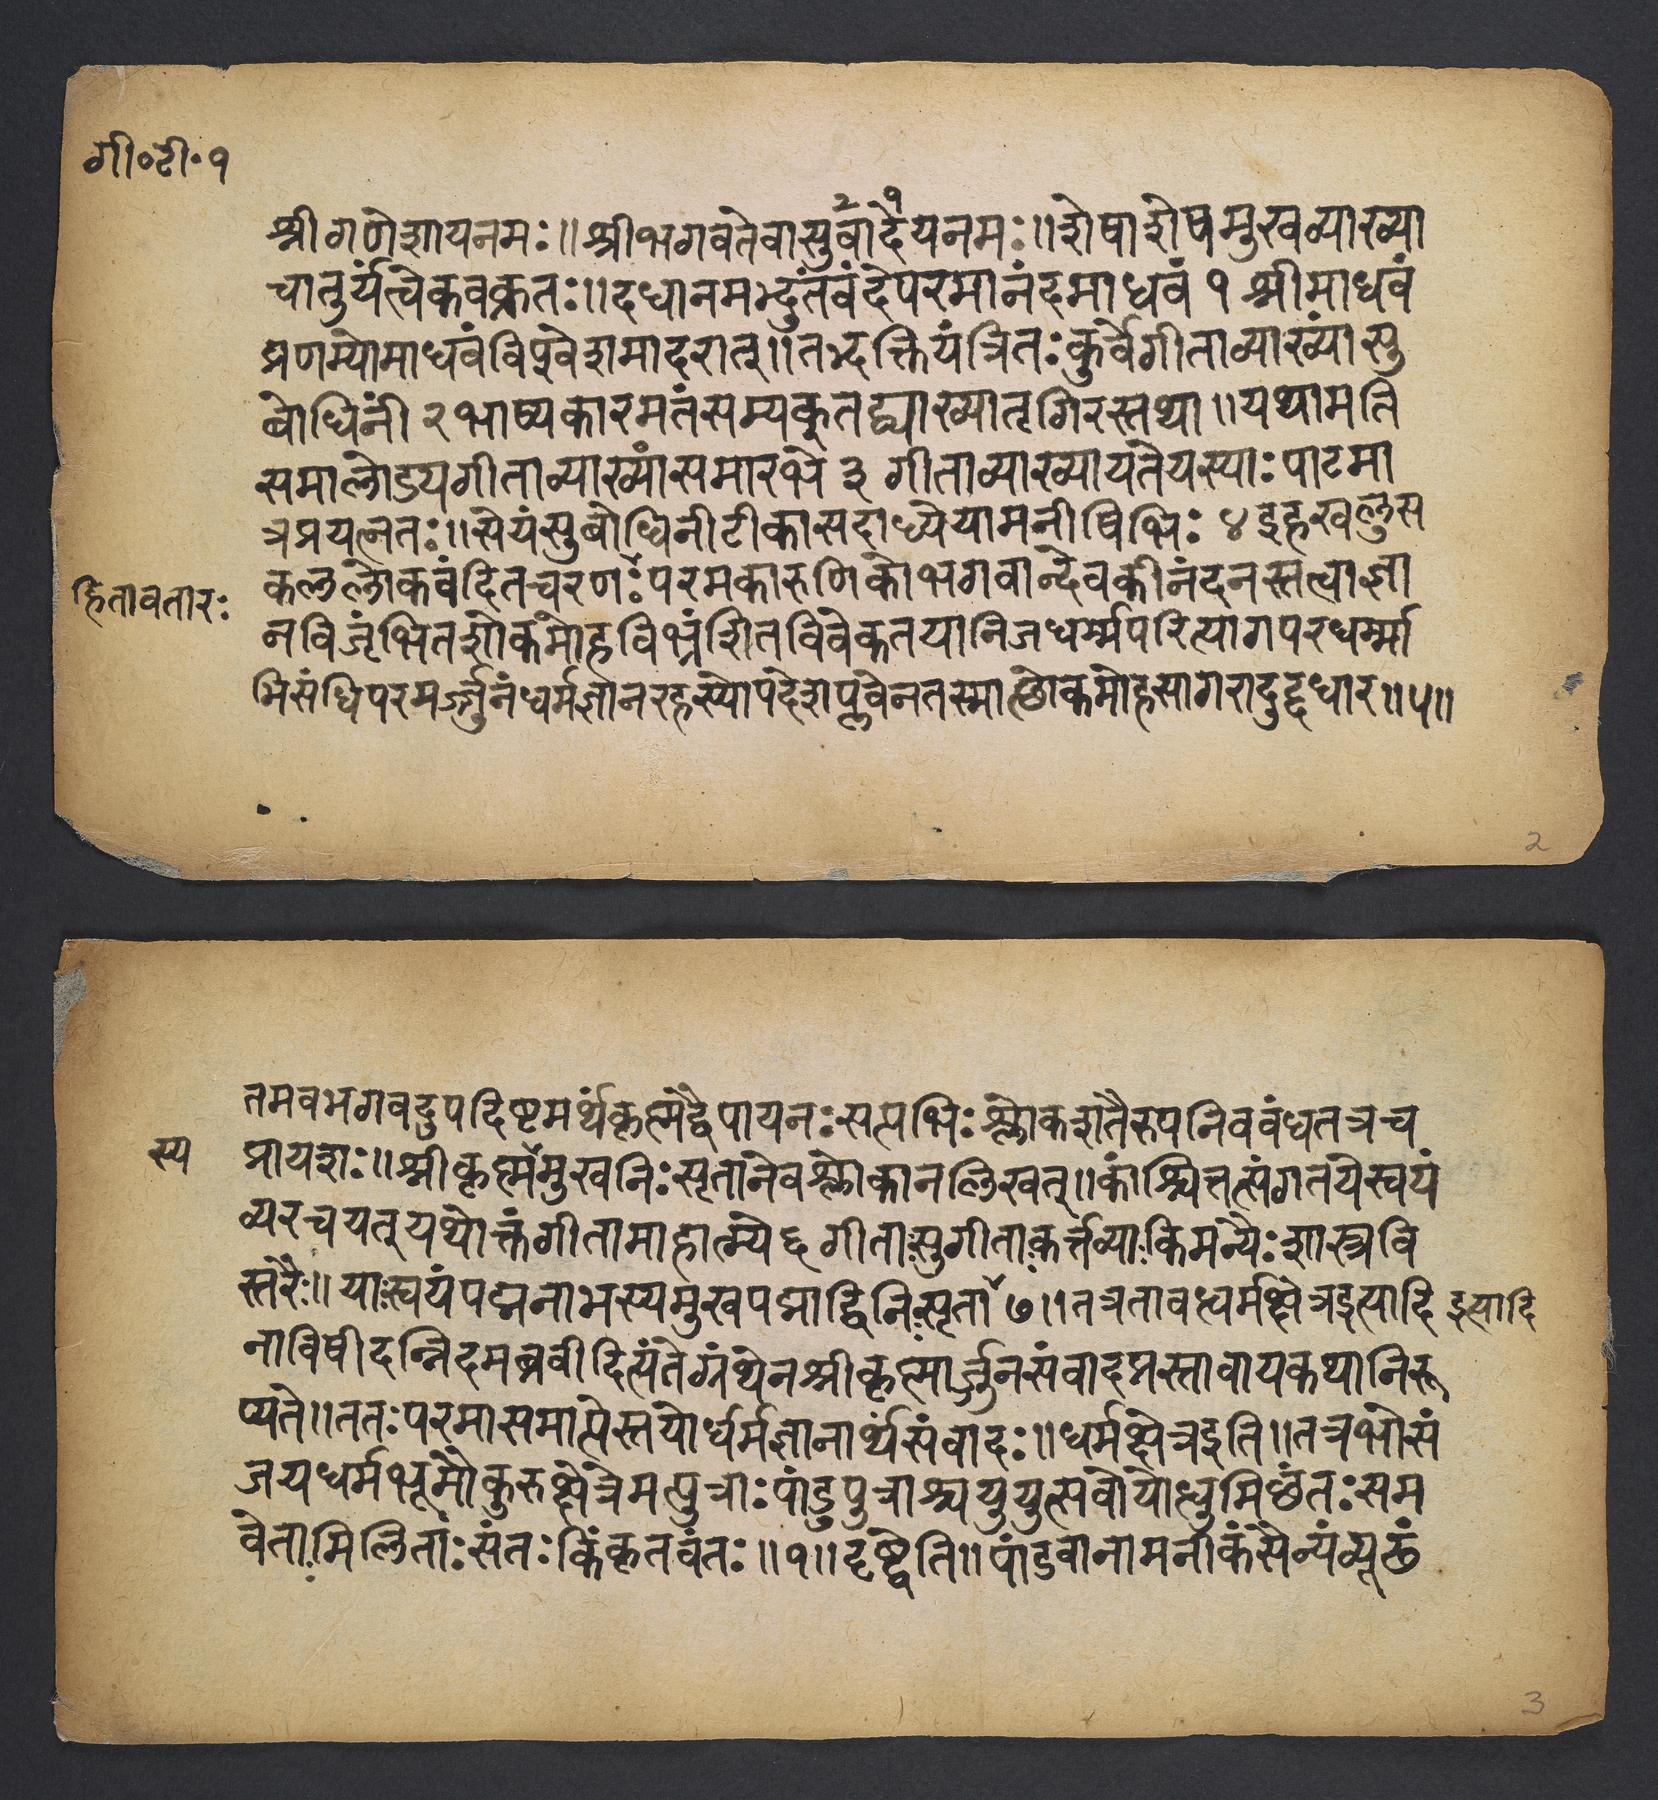 गी॰टी॰१
२ १
श्रीगणेशायनमः॥श्रीभगवतेवासुवादेयनमः॥शेषाशेषमुखव्याख्या
चातुर्यंत्वेकवक्रतः॥दधानमभ्दुतंवंदेपरमानंदमाधवं १ श्रीमाधवं
प्रणम्योमाधवंविश्वेशमादरात्॥तभ्दक्तियंत्रितःकुर्वेगीताव्याख्यांसु
बोधिनीं २ भाष्यकारमतंसम्यक्तद्व्याख्यातृगिरस्तथा॥यथामति
समालोड्यगीताव्याख्यांसमारभे ३ गीताव्याख्यायतेयस्याःपाठमा
त्रप्रयत्नतः॥सेयंसुबोधिनीटीकासदाध्येयामनीषिभिः ४ इहखलुस
कललोकवंदितचरणःपरमकारुणिकोभगवान्देवकीनंदनस्तत्वाज्ञा
हितावतारः
नविजृंभितशोकमोहविभ्रंशितविवेकतयानिजधर्म्मपरित्यागपरधर्म्मा
भिसंधिपरमर्ज्जुनंधर्मज्ञानरहस्योपदेशप्लवेनतस्माछोकमोहसागरादुद्दधार॥५॥
2
तमवभगवदुपदिष्टमर्थंकृत्स्नंद्वैपायनःसप्तभिःश्लोकशतैरुपनिववंधतत्रच
स्य
प्रायशः॥श्रीकृष्णमुखनिःसृतानेवश्लोकानलिखत्॥कांश्चित्तत्संगतयेस्वयं
व्यरचयत् यथोक्तंगीतामाहात्म्ये ६ गीतासुगीताकर्त्तव्याकिमन्यैःशास्त्रवि
स्तरैः॥ यास्वयंपद्मनाभस्यमुखपद्माद्विनिसृता ७॥तत्रतावध्वर्मक्षेत्रइत्यादि
इत्यादि
नाविषीदन्निदमब्रवीदित्यंतेग्रंथेनश्रीकृष्णार्ज्जुनसंवादप्रस्तावायकथानिरू
प्यते॥ततःपरमासमाप्तेस्तयोर्धर्मज्ञानार्थंसंवादः॥धर्मक्षेत्रइति॥तत्रभोसं
जयधर्मभूमौकुरुक्षेत्रेमत्पुत्राःपांडुपुत्राश्चयुयुत्सवोयोत्धुमिछंतःसम
वेतामिलिताःसंतःकिंकृतवंतः॥१॥दृष्ट्वेति॥पांडवानामनीकंसैन्यंव्यूढं
3